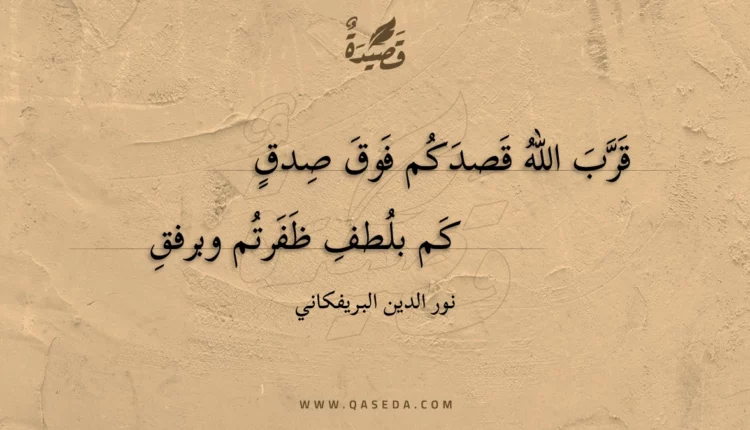 قَصِيدَةٌ
قَرَّبَ اللهُ قَصدَكُم فَوقَ صِدقٍ
كَم بلُطفِ ظَفَرتُم وبرفقِ
نور الدين البريفكاني
WWW.QASEDA.COM